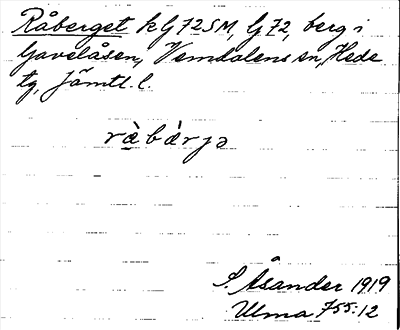 Råberget kG72SM, G72, berg i
Gavelåsen, Vemdalens sn, Hede
tg, Jämtl. l.
rὰ̣bὰ̣rjə
S. Åsander 1919
Ulma 755:12